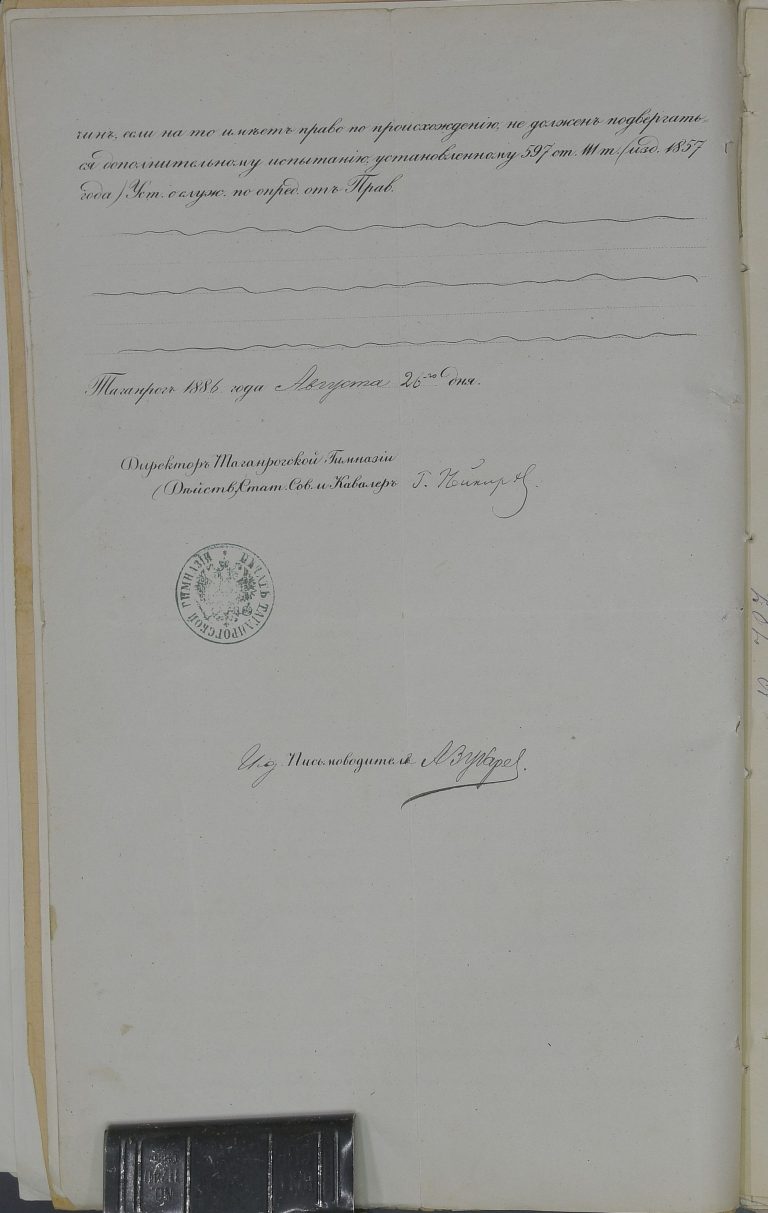 чинъ, если на то имѣетъ право по происхожденію, не долженъ подвергать-
ся дополнительному испытанію, установленному 597 ст. III т. (изд. 1857
года) Уст. о служ. по опред. отъ Прав.
Таганрогъ 1886 года Августа 26го дня.
Директоръ Таганрогской Гимназіи
(Дѣйств. Стат. Сов. и Кавалеръ Г.
ПЕЧАТЬ ТАГАНРОГСКОЙ ГИМНАЗІИ
И. д. Письмоводителя А Зубарев.